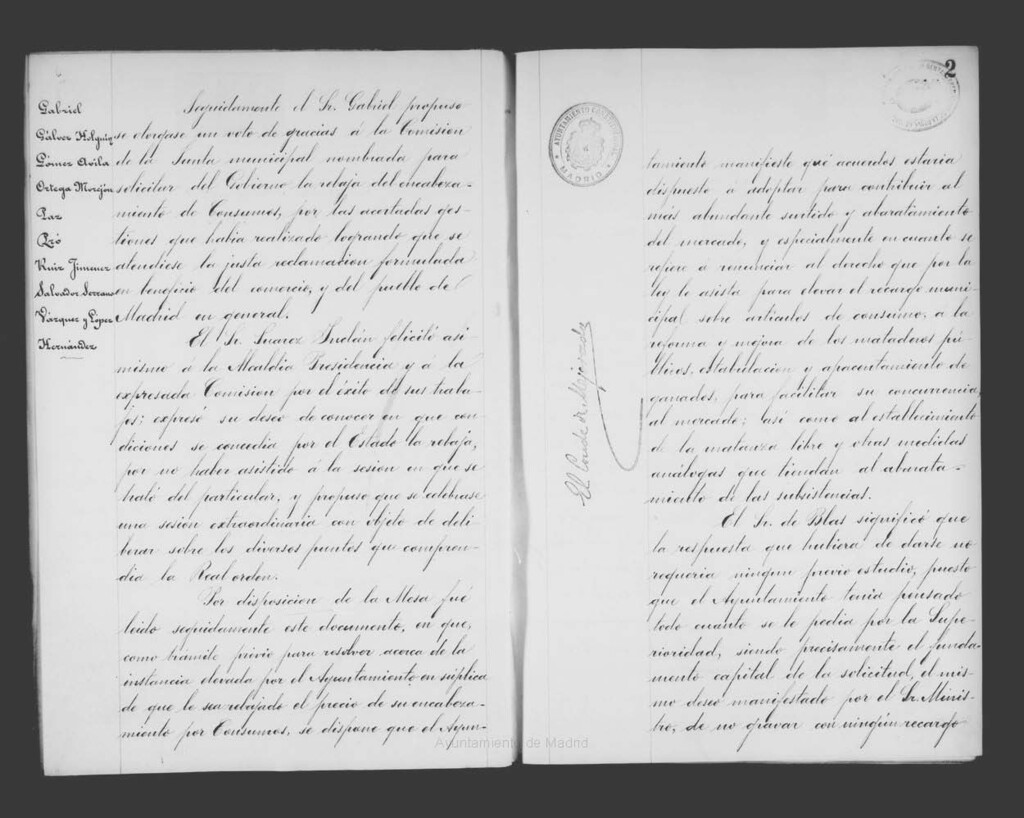 Gabriel
Gálvez Holguín
Gómez Avila
Ortega Morejón
Paz
Pró
Ruiz Jimenez
Salvador Serrano
Vázquez y López
Hernández
Seguidamente el Sr. Gabriel propuso
se otorgase un voto de gracias á la Comision
de la Junta municipal nombrada para
solicitar del Gobierno la rebaja del encabeza-
miento de Consumos, por las acertadas ges-
tiones que habia realizado logrando que se
atendiese la justa reclamacion formulada
en beneficio del comercio, y del pueblo de
Madrid en general.
El Sr. Suarez Inclán felicitó asi
mismo á la Alcaldia Presidencia y á la
expresada Comision por el éxito de sus traba-
jos; expresó su deseo de conocer en que con
diciones se concedia por el Estado la rebaja,
por no haber asistido á la sesion en que se
trató del particular, y propuso que se celebrase
una sesión extraordinaria con objeto de deli
berar sobre los diversos puntos que compren-
dia la Real orden.
Por disposicion de la Mesa fué
leido seguidamente este documento, en que,
como trámite previo para resolver acerca de la
instancia elevada por el Ayuntamiento en súplica
de que le sea rebajado el precio de su encabeza-
miento por Consumos, se dispone que el Ayun-
2
AYUNTAMIENTO CONSTITUCIONAL
MADRID
El Conde de Mejorada
tamiento manifieste qué acuerdos estaria
dispuesto á adoptar para contribuir al
más abundante surtido y abaratamiento
del mercado, y especialmente en cuanto se
refiere á renunciar al derecho que por la
ley le asista para elevar el recargo muni-
cipal sobre articulos de consumo, a la
reforma y mejora de los mataderos pú-
blicos, estabulacion y apacentamiento de
ganados, para facilitar su concurrencia
al mercado; asi como al establecimiento
de la matanza libre y otras medidas
análogas que tiendan al abarata-
miento de las subsistencias.
El Sr. de Blas significó que
la respuesta que hubiera de darse no
requeria ningun previo estudio, puesto
que el Ayuntamiento tenia pensado
todo cuanto se le pedia por la Supe-
rioridad, siendo precisamente el funda-
mento capital de la solicitud, el mis-
mo deseo manifestado por el Sr. Minis-
tro, de no gravar con ningún recargo
Ayuntamiento de Madrid